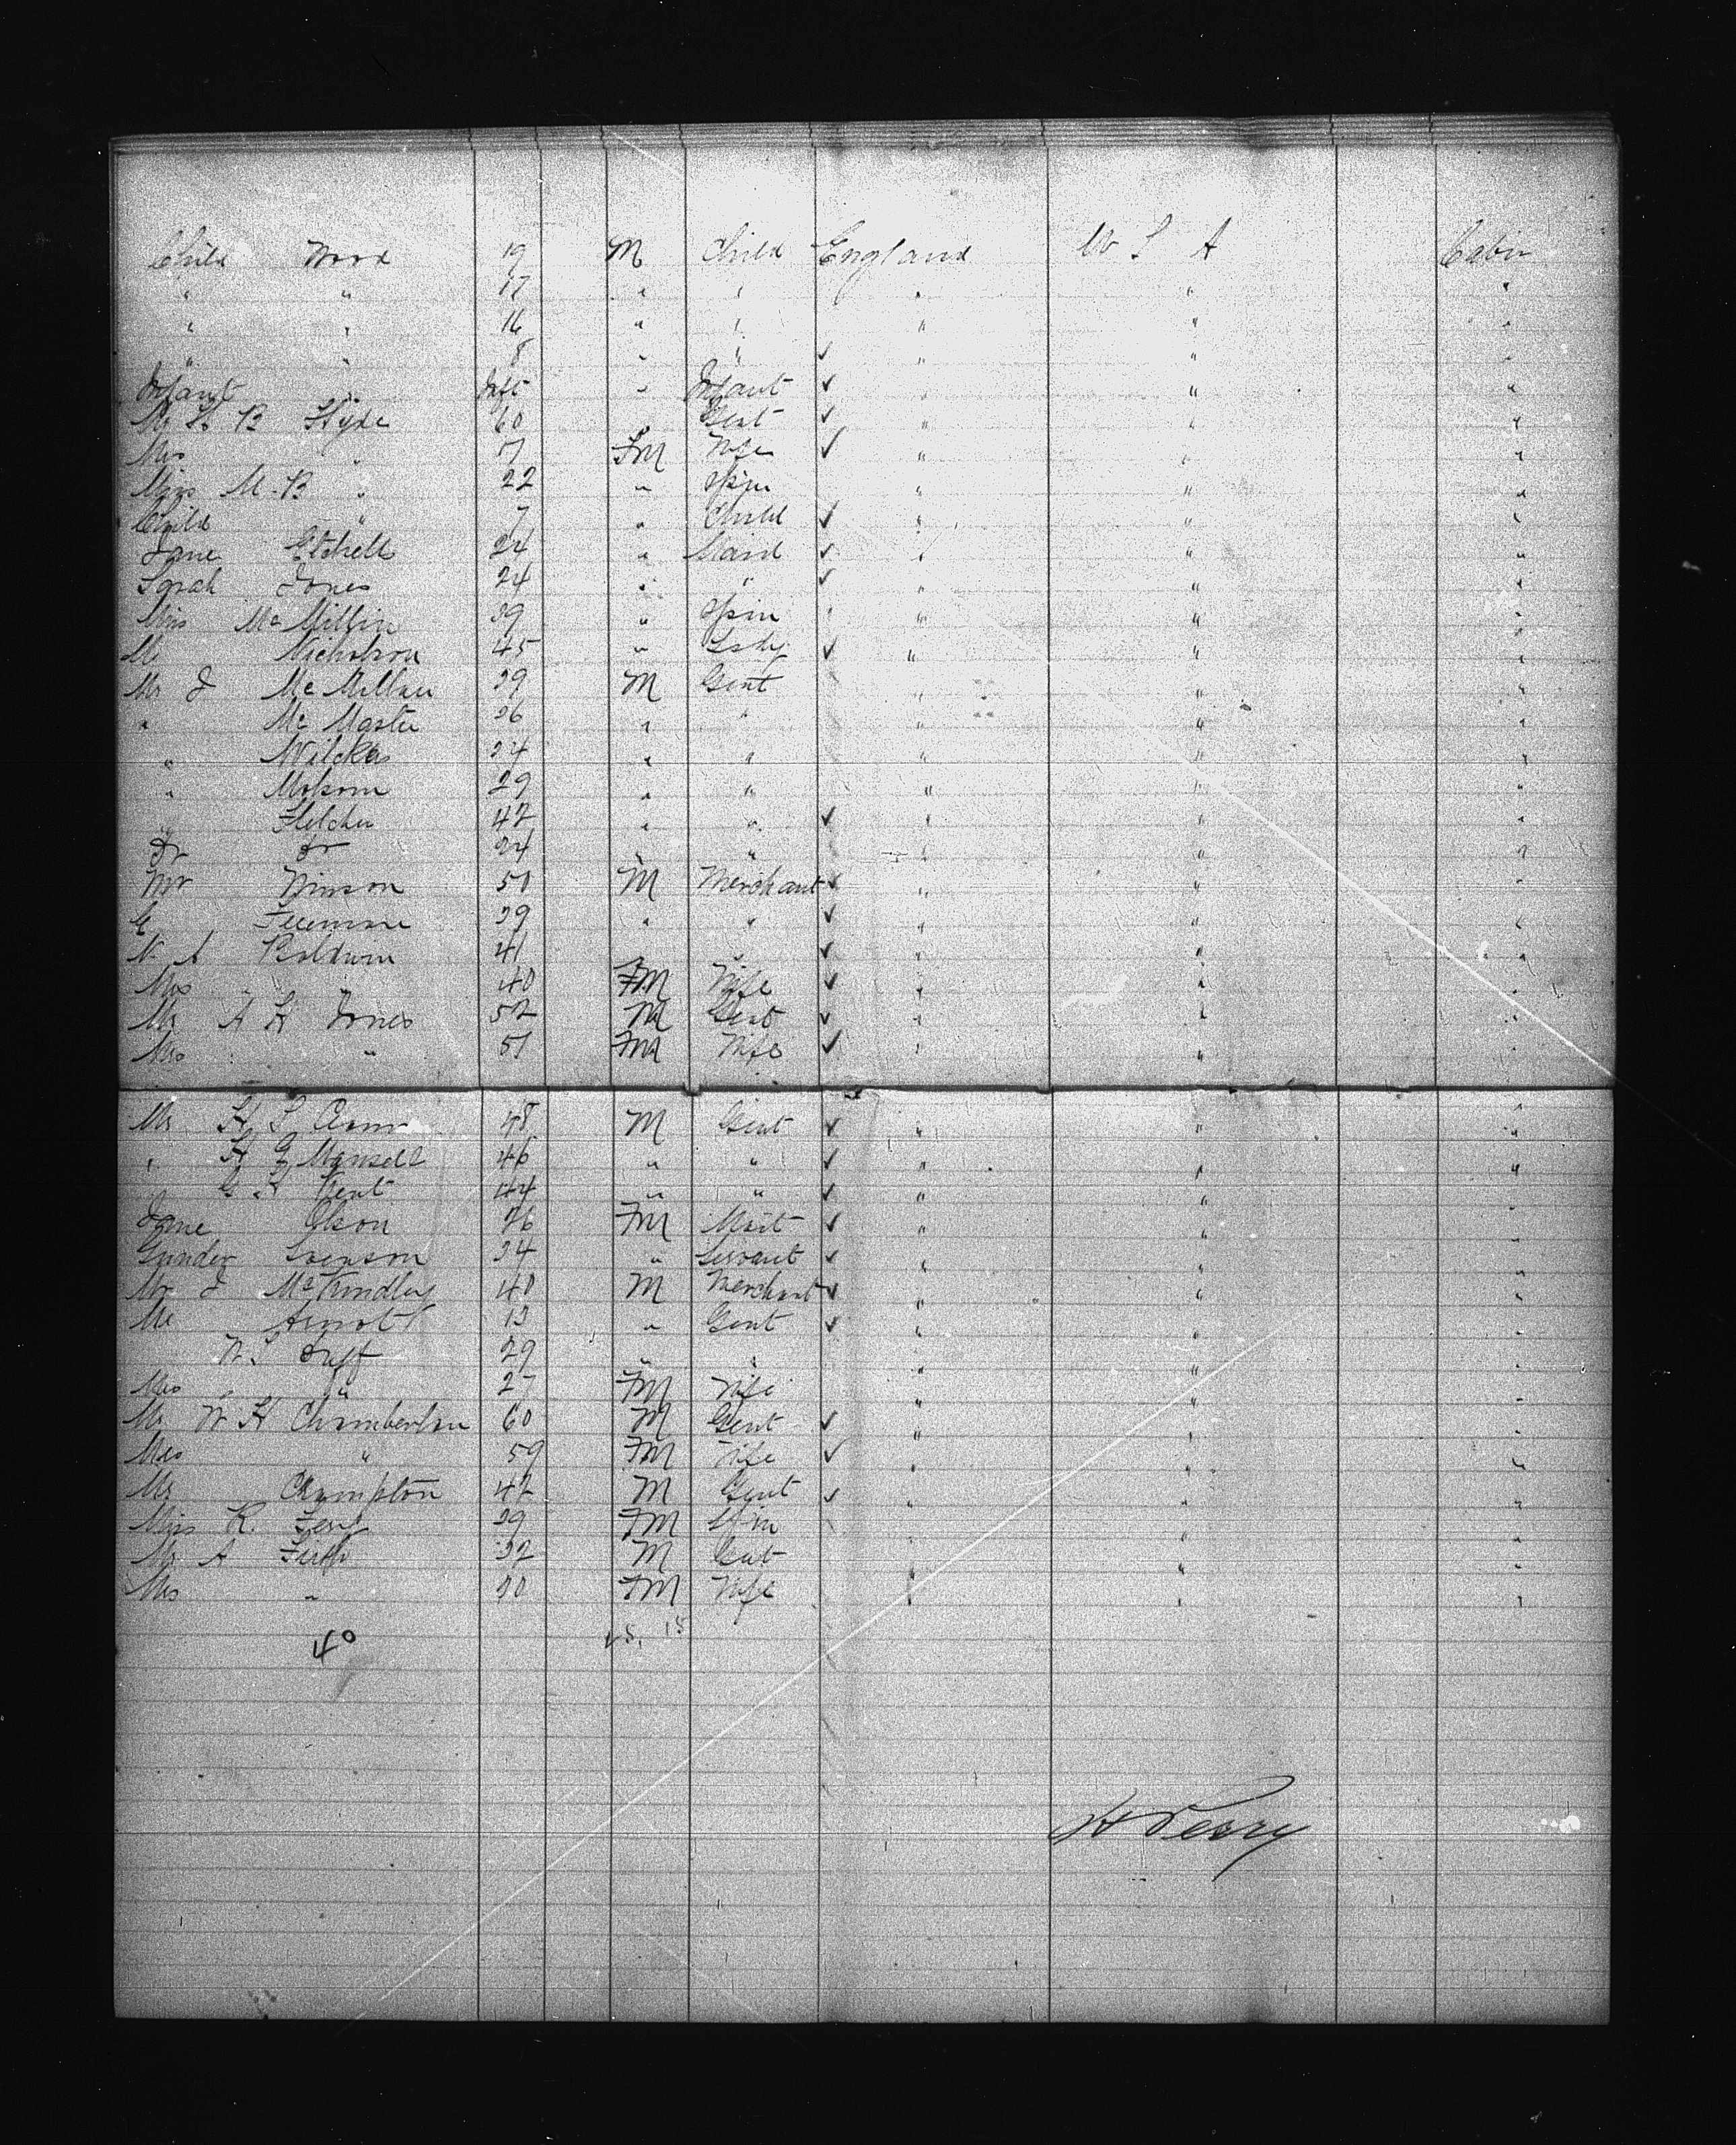 Child Wood 19 M Child England U S A Cabin
" " 17 " " " " "
" " 16 " " " " "
" " 8 " " ✓ " " "
Infant " Inft " Infant ✓ " " "
Mr H B Hyde 60 " Gent ✓ " " "
Mrs " FM Wife ✓ " " "
Miss M. B " 22 " Spin " " "
Child " 7 " Child ✓ " " "
Jane Etchells 24 " Maid ✓ " " "
Sarah Jones 24 " " ✓ " " "
Miss McMillin 39 " Spin " " "
M Nicholson 45 " Lady ✓ " " "
Mr J McMillan 39 M Gent " " "
" McMaster 36 " " " " "
" 34 " " " " "
" Molson 29 " " " " "
" Fletcher 42 " " ✓ " " "
Dr 34 " " " " "
Mr Winson 50 M Merchant ✓ " " "
39 " " ✓ " " "
W. A Baldwin 41 " " ✓ " " "
Mrs " 40 FM Wife ✓ " " "
Mr A H Jones 52 M Gent ✓ " " "
Mrs " 51 FM Wife ✓ " " "
Mr H S 48 M Gent ✓ " " "
" H G Mansell 46 " " ✓ " " "
Kent 44 " " ✓ " " "
Jane Olson FM ✓ " " "
Svenson 34 " Servant ✓ " " "
Mr J McKindley 40 M Merchant ✓ " " "
Mr Arnott " Gent ✓ " " "
W. S Duff 29 " " " " "
Mrs " 27 FM Wife " " "
Mr W H Chamberlan 60 M Gent ✓ " " "
Mrs " 59 FM Wife ✓ " " "
Mr Crompton 42 M Gent ✓ " " "
Miss R. 39 FM Spin " " "
Mr A Firth 32 M Gent " " "
Mrs " 30 FM Wife " " "
40
H Perry